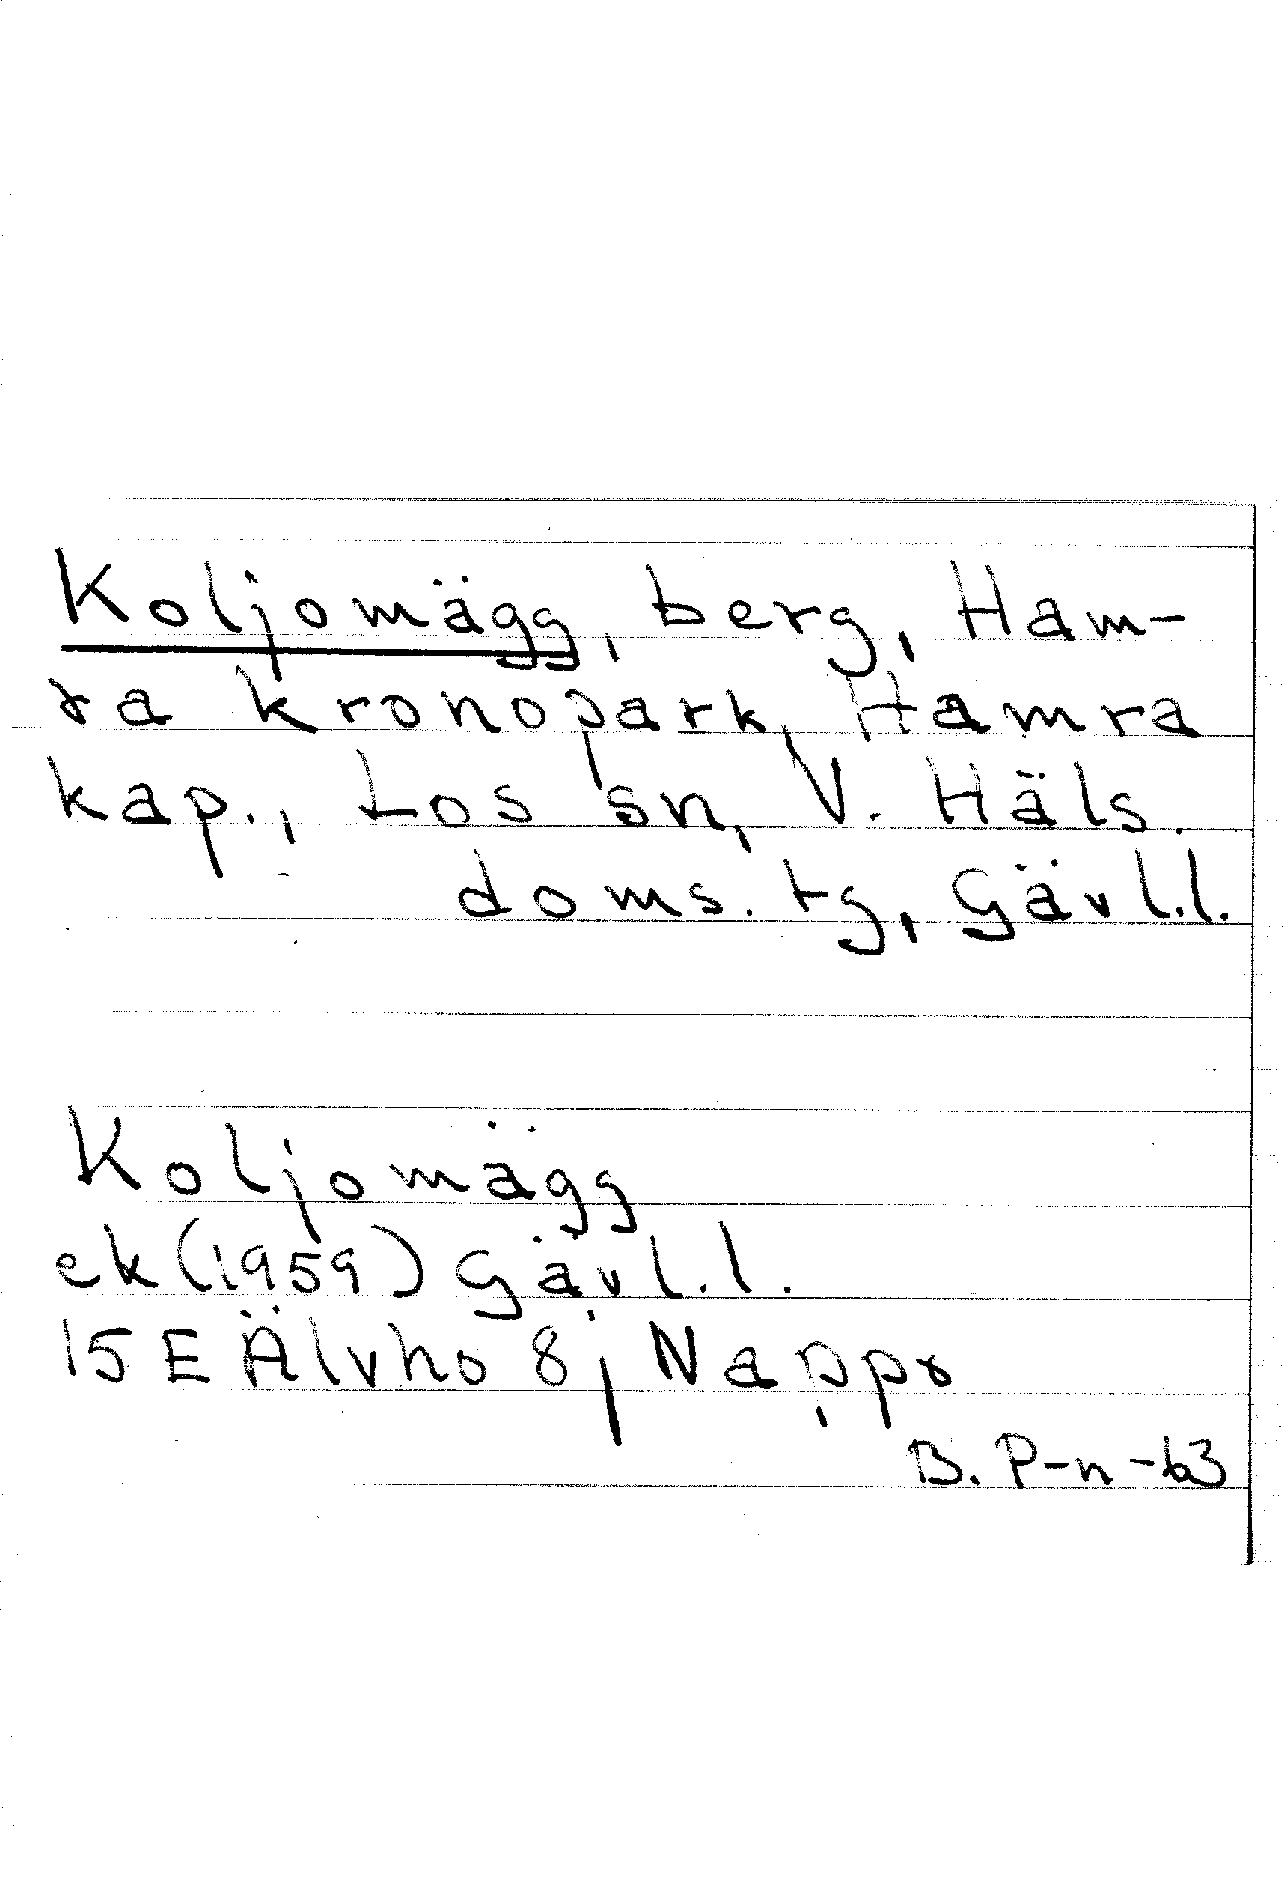 Koljomägg, berg, Ham-
ra kronopark, Hamra
kap., Los sn, V. Häls.
doms. tg, Gävl.l.
Koljomägg
ek (1959) Gävl.l.
15E Älvho 8j Nappo
B. P-n -63